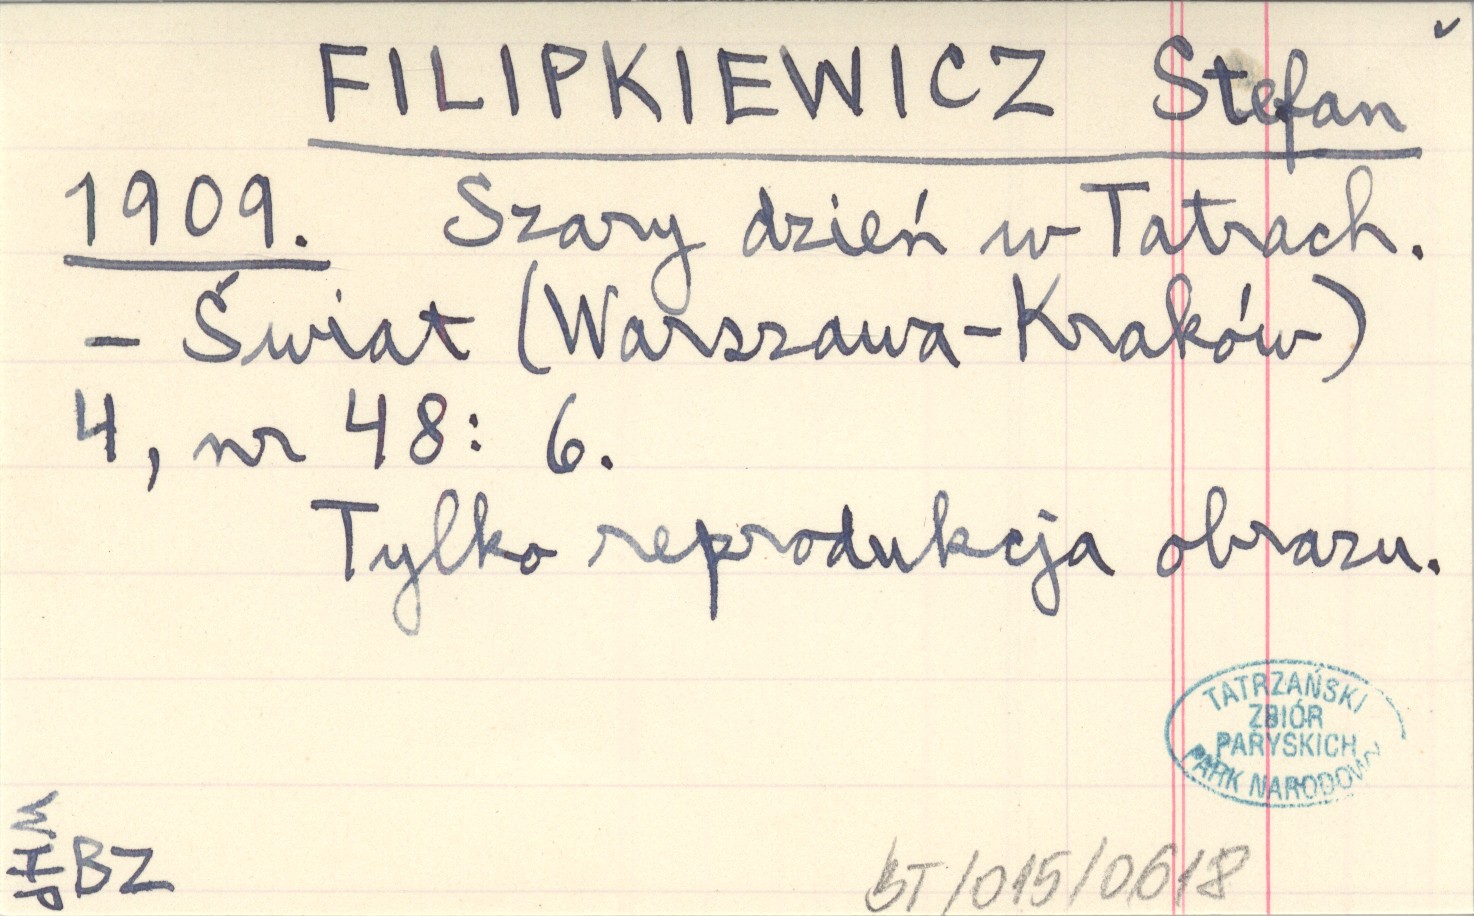 FILIPKIEWICZ Stefan
1909. Szary dzień w Tatrach.
– Świat (Warszawa-Kraków)
4, nr 48: 6.
Tylko reprodukcja obrazu.
TATRZAŃSKI
ZBIÓR
PARYSKICH
PARK NARODOWY
BZ
BT/015/0618